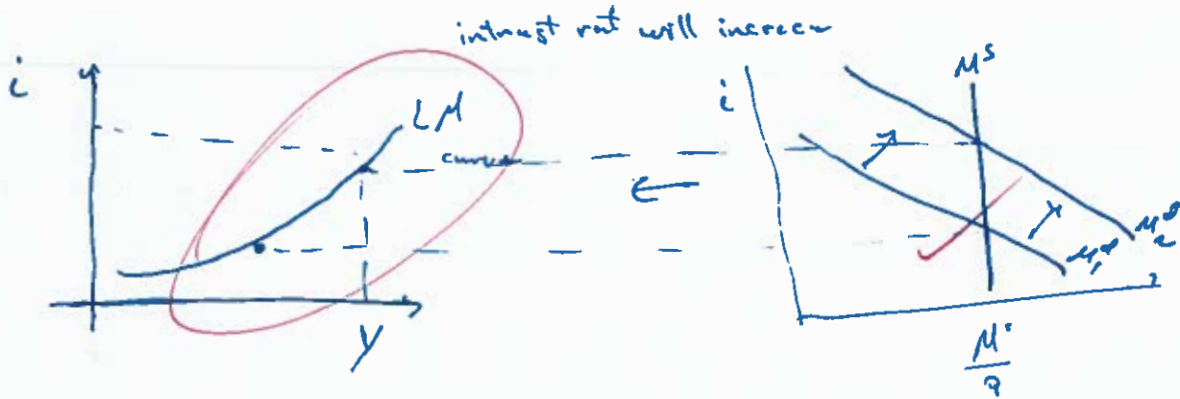 intrust rat will increase
i
LM
curve
Y
i
M^s
M_2^d
M_1^d
M^s
P